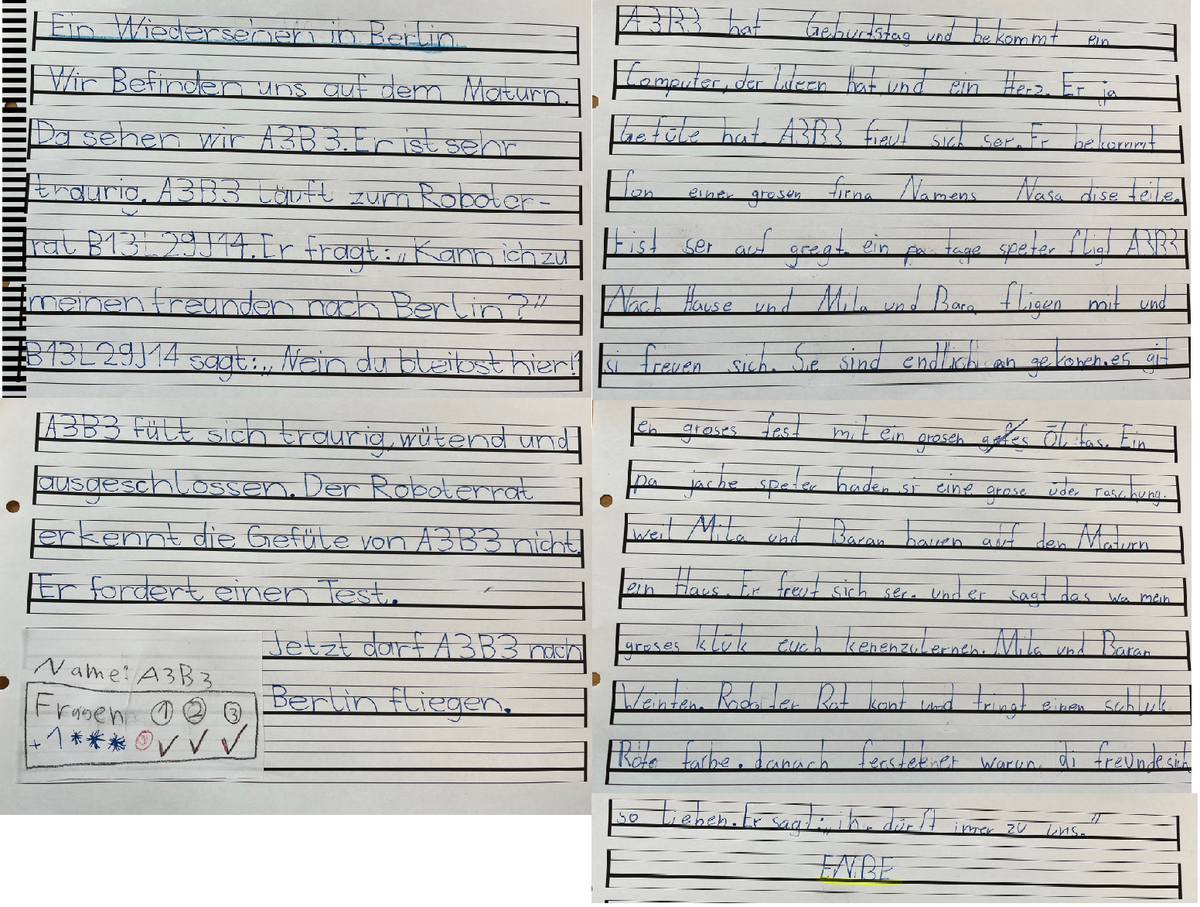 Ein Wiedersehen in Berlin
Wir Befinden uns auf dem Maturn.
Da sehen wir A3B3. Er ist sehr
traurig. A3B3 läuft zum Roboter-
rat B13L29J14. Er fragt: „Kann ich zu
meinen freunden nach Berlin?"
B13L29J14 sagt: „Nein du bleibst hier!"
A3B3 fült sich traurig, wütend und
ausgeschlossen. Der Roboterrat
erkennt die Gefüle von A3B3 nicht.
Er fordert einen Test.
Jetzt darf A3B3 nach
Berlin fliegen.
Name: A3B3
Fragen 1 2 3
+1 *** ✓ ✓ ✓
A3B3 hat Geburtstag und bekommt ein
Computer, der Ideen hat und ein Herz. Er ja
Gefüle hat. A3B3 freut sich ser. Er bekommt
fon einer grosen firna Namens Nasa dise teile.
Er ist ser auf gregt. ein pa tage speter fligt A3B3
Nach Hause und Mila und Bara fligen mit und
si freuen sich. Sie sind endlich an gekonen. es git
en groses fest mit ein grosen Öl fas. Ein
pa jache speter haben si eine grose über raschung.
weil Mila und Baran bauen auf den Maturn
ein Haus. Er freut sich ser. und er sagt das wa mein
groses klük euch kenenzulernen. Mila und Baran
Weinten. Roboter Rat komt und tringt einen schluk
Rote farbe. danach ferstet er warun di freunde sich
so Lieben. Er sagt: „ihr dürft imer zu uns."
ENDE